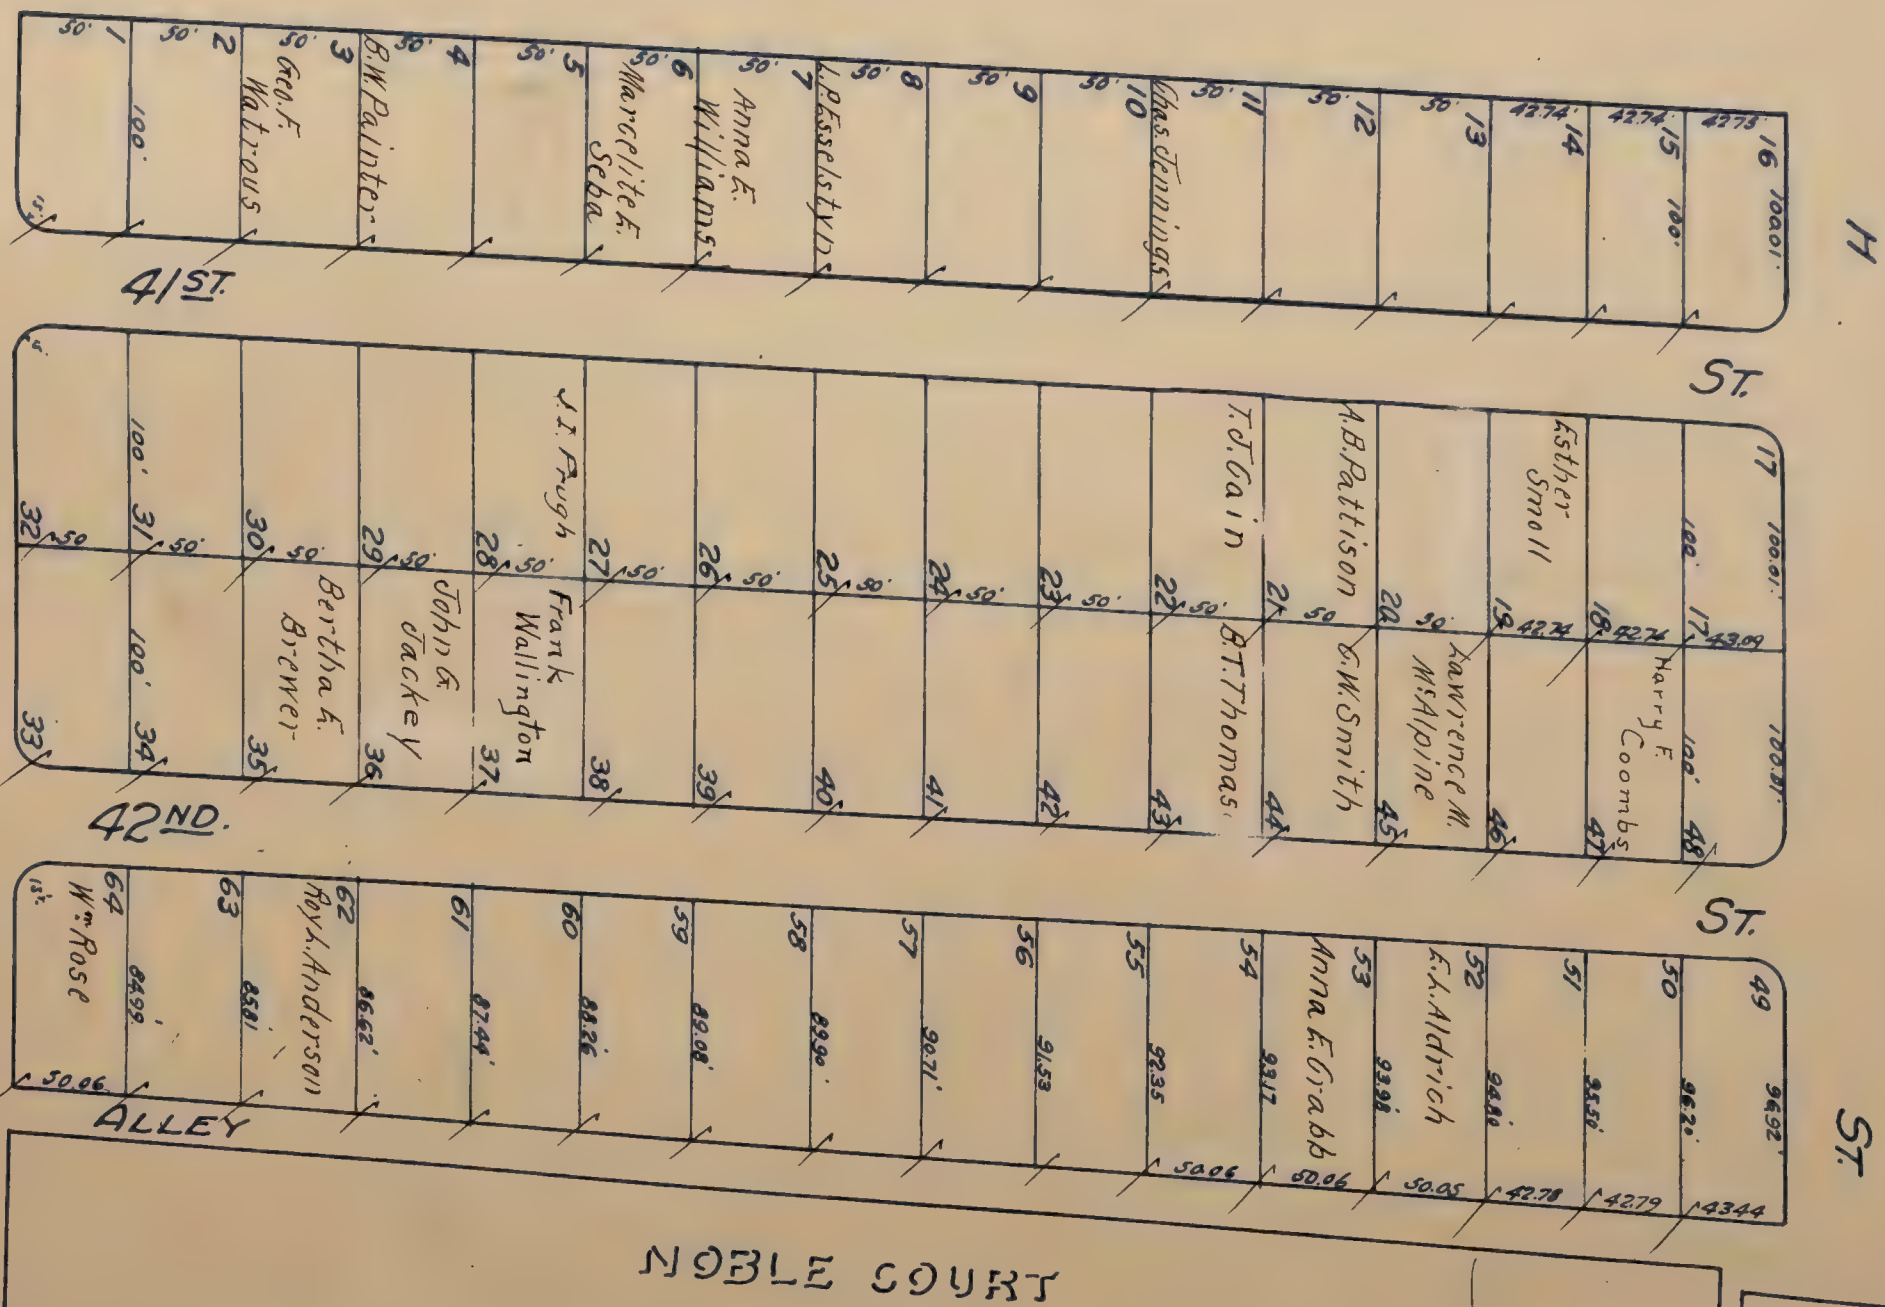 50' 1
50' 2
50' 3
50' 4
50' 5
50' 6
50' 7
50' 8
50' 9
50' 10
50' 11
50' 12
50' 13
42.74' 14
42.74' 15
42.75' 16
100'
Geo. F.
Watrous
B.W. Painter
Marcelite E.
Seba
Anna E.
Williams
L.P. Esselstyn
Chas. Jennings
100'
100.01'
15'
H
41ST.
ST.
100'
J.I. Frugh
T.J. Gain
A.B. Pattison
Esther
Smoll
100'
17
100.01'
32 50
31 50'
30 50'
29 50'
28 50'
27 50'
26 50'
25 50'
24 50'
23 50'
22 50'
21 50
20 50'
19 42.74
18 42.74
17 43.09
100'
Bertha E.
Brewer
John G.
Jackey
Frank
Wallington
B.T. Thomas
G.W. Smith
Lawrence M.
McAlpine
Harry F.
Coombs
100'
100.01'
33
34
35
36
37
38
39
40
41
42
43
44
45
46
47
48
42ND.
ST.
15'
64
63
62
61
60
59
58
57
56
55
54
53
52
51
50
49
Wm Rose
Roy L. Anderson
Anna E. Grabb
E.L. Aldrich
84.99'
85.81'
86.62'
87.44'
88.26'
89.08'
89.90'
90.71'
91.53
92.35
93.17
93.98'
94.80'
95.50'
96.20'
96.92'
50.06
50.06
50.06
50.05
42.78
42.79
43.44
ALLEY
ST.
NOBLE COURT